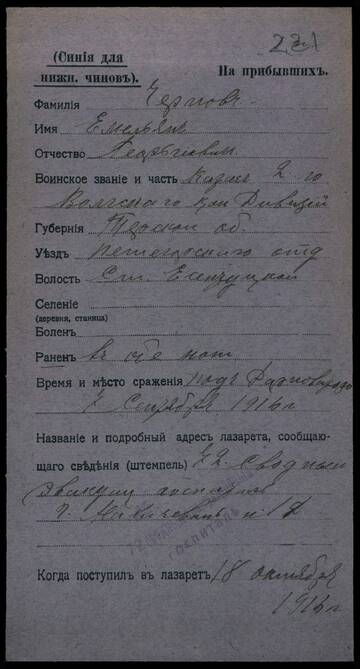 231
(Синія для
нижн. чиновъ).
На прибывшихъ.
Фамилія Черновъ
Имя Емельянъ
Отчество Георгіевич
Воинское званіе и часть Казакъ 2 го
Волгскаго Дивизіи
Губернія Терской об.
Уѣздъ Пятигорскаго отд
Волость Ст. Есентуцкой
Селеніе
(деревня, станица)
Боленъ
Раненъ въ обѣ ноги
Время и мѣсто сраженія подъ
7 Сентября 1916 г
Названіе и подробный адресъ лазарета, сообщаю-
щаго свѣдѣнія (штемпель) 72 Сводный
эвакуац госпиталь
г.
госпиталь
Когда поступилъ въ лазаретъ 18 октября
1916 г